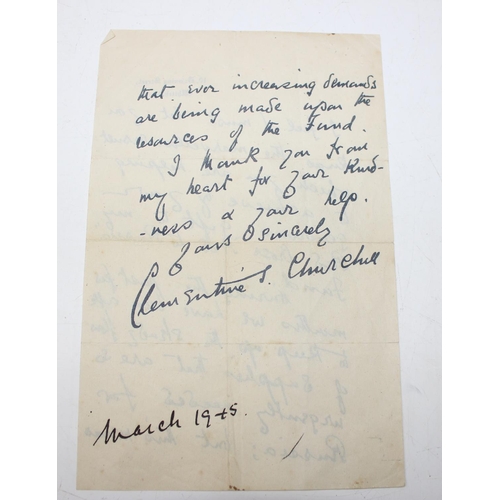 that ever increasing demands
are being made upon the
resources of the Fund.
I thank you from
my heart for your kind-
-ness & your help.
Yours sincerely
Clementine S. Churchill
March 1945.